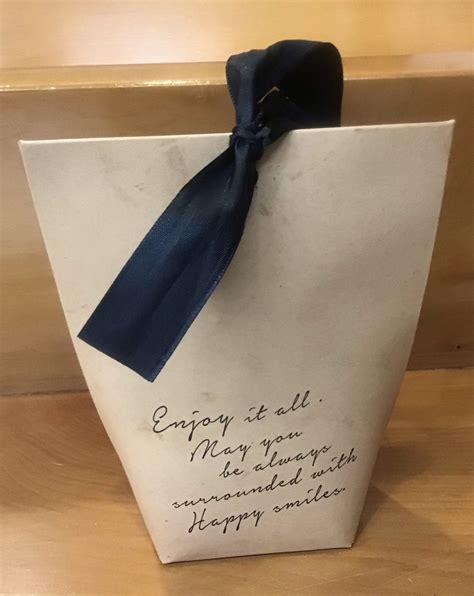 Enjoy it all.
May you
be always
surrounded with
Happy smiles.